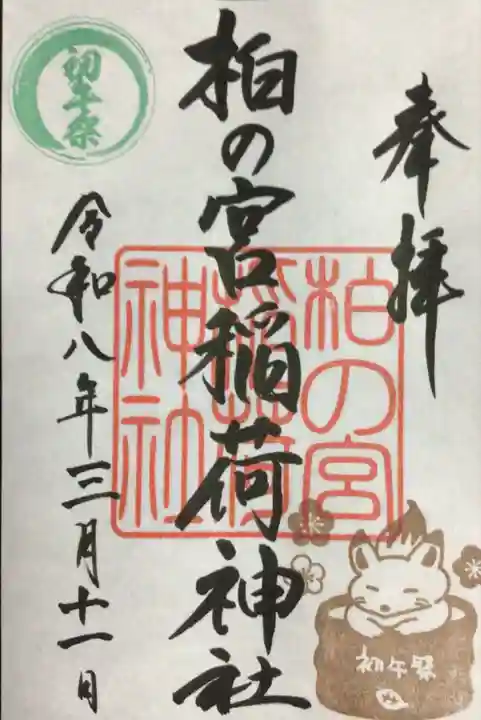 奉拝
柏の宮稲荷神社
柏の宮
稲荷
神社
初午祭
令和八年三月十一日
初午祭